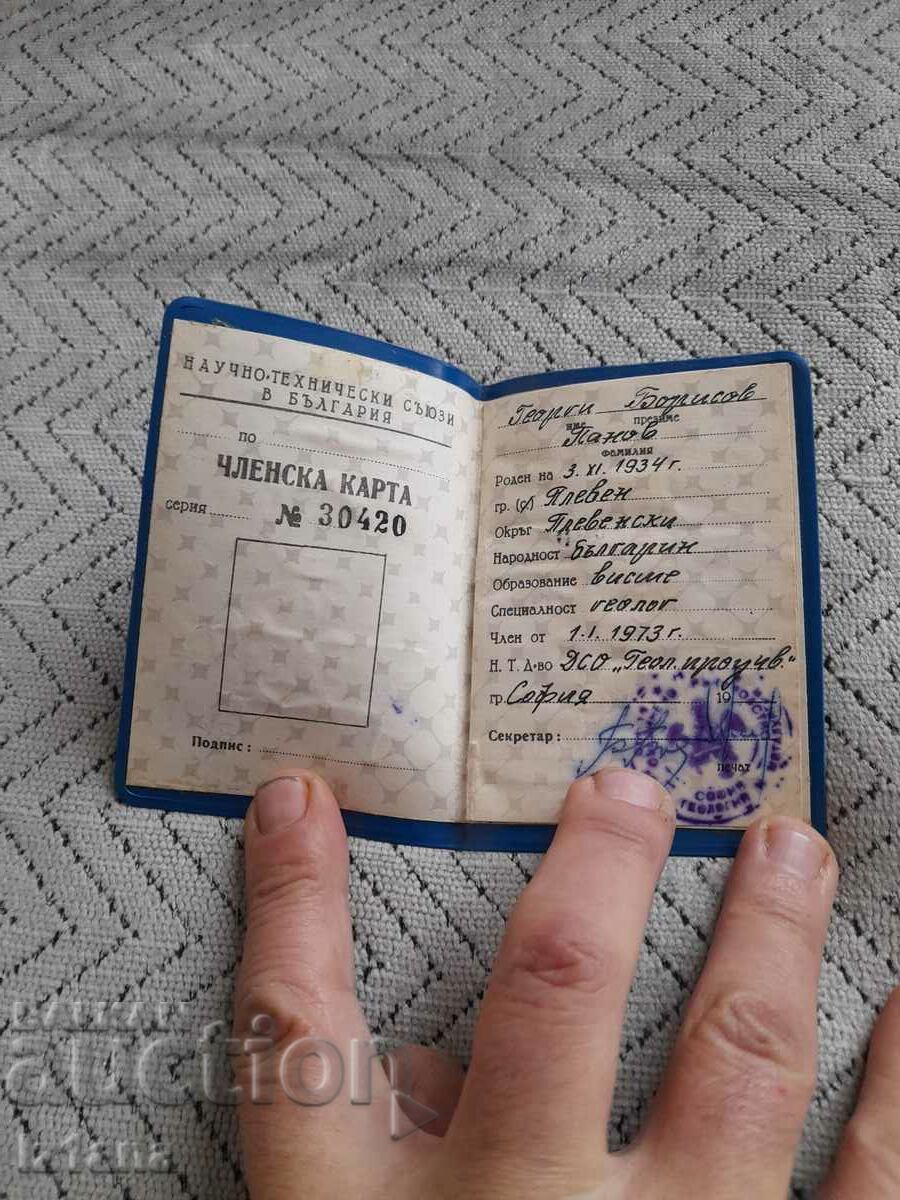 НАУЧНО-ТЕХНИЧЕСКИ СЪЮЗИ
В БЪЛГАРИЯ
по
ЧЛЕНСКА КАРТА
серия № 30420
Подпис :
Георги Борисов
име презиме
Панов
фамилия
Роден на 3. XI. 1934 г.
гр. (с) Плевен
Окръг Плевенски
Народност българин
Образование висше
Специалност геолог
Член от 1. I. 1973 г.
Н. Т. Д-во ДСО „Геол. проучв."
гр. София 19
Секретар :
печат
СОФИЯ
ГЕОЛОГИЯ
БАЛКАН
auction
k1ana